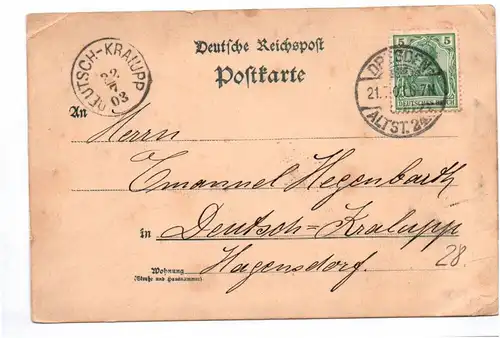 Deutsche Reichspost
Postkarte
DEUTSCH-KRALUPP
22
03
5 5
DEUTSCHES REICH
DRESDEN
21.
6-7N
ALTST. 24
An
Herrn
Emanuel Hegenbarth
in Deutsch-Kralupp
Hagensdorf.
28
Wohnung
(Straße und Hausnummer)